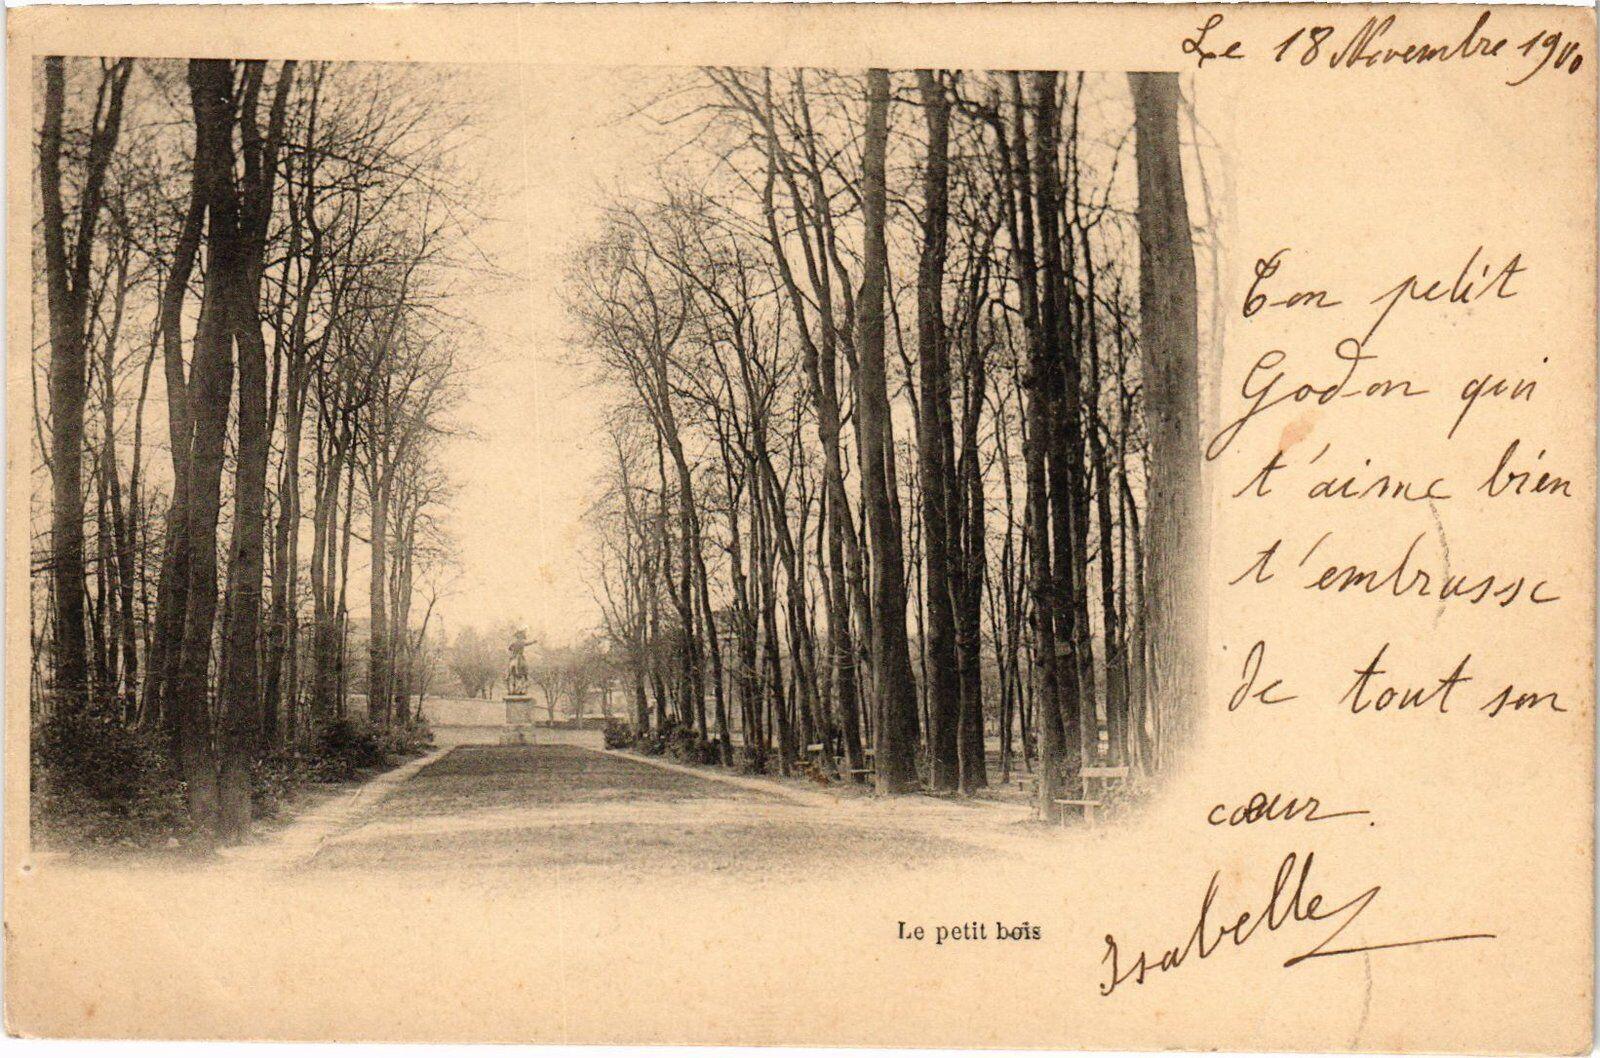 Le 18 Novembre 1900
Ton petit
Godon qui
t'aime bien
t'embrasse
de tout son
cœur.
Isabelle
Le petit bois